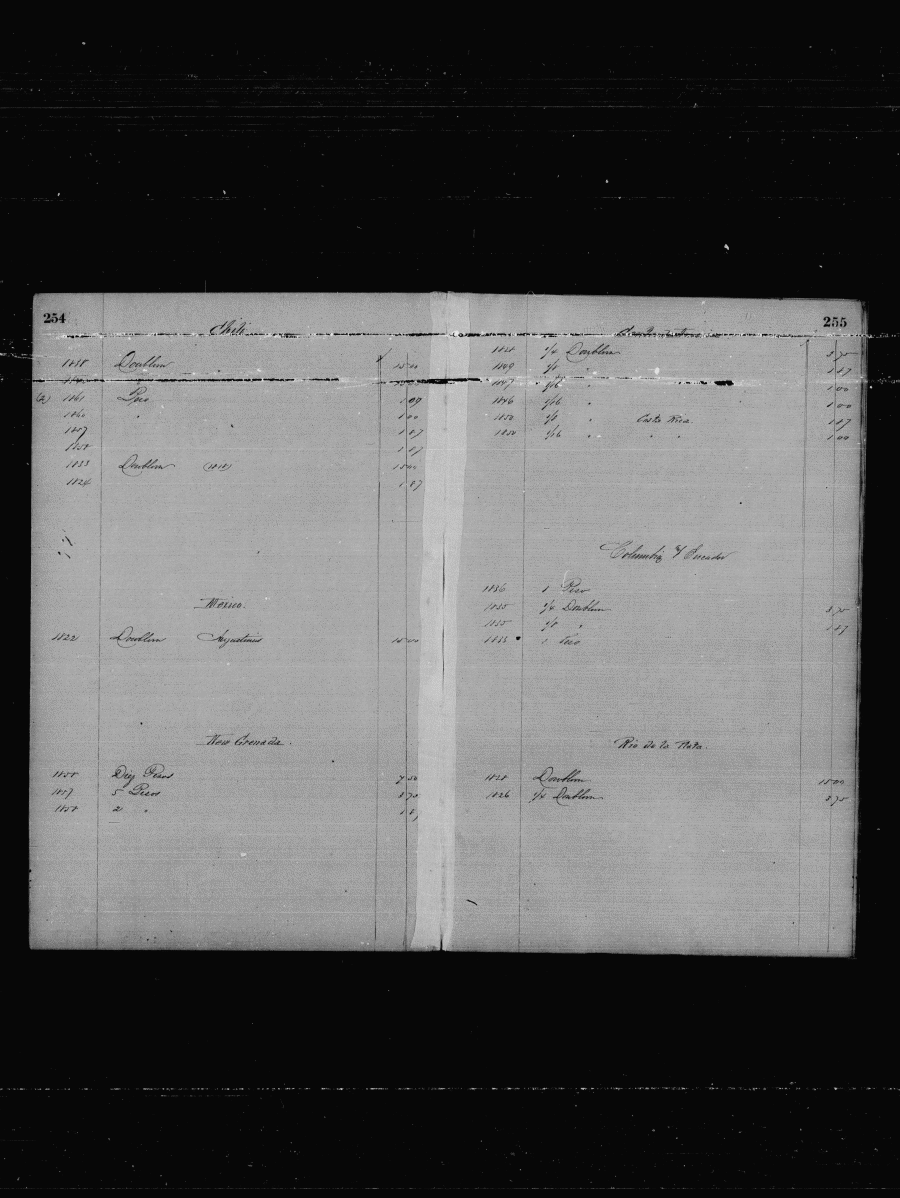 254
Chili
1838 Doubloon 15 00
(2) 1861 Peso 1 09
1860 " 1 00
1857 1 87
1858 1 87
1833 Doubloon (1818) 15 00
1824 1 87
Mexico.
1822 Doubloon Augustinus 15 00
New Grenada.
1858 Diez Pesos 7 50
1857 5 Pesos 3 75
1858 2 "
255
1828 1/4 Doubloon 3 75
1849 1/8 " 1 87
1847 1/16 " 1 00
1846 1/16 " 1 00
1850 1/8 " Costa Rica 1 87
1850 1/16 " " " 1 00
Columbia & Ecuador
1836 1 Peso
1835 1/4 Doubloon 3 75
1835 1/8 " 1 87
1833 1 Peso
Rio de la Plata.
1828 Doubloon 15 00
1826 1/4 Doubloon 3 75